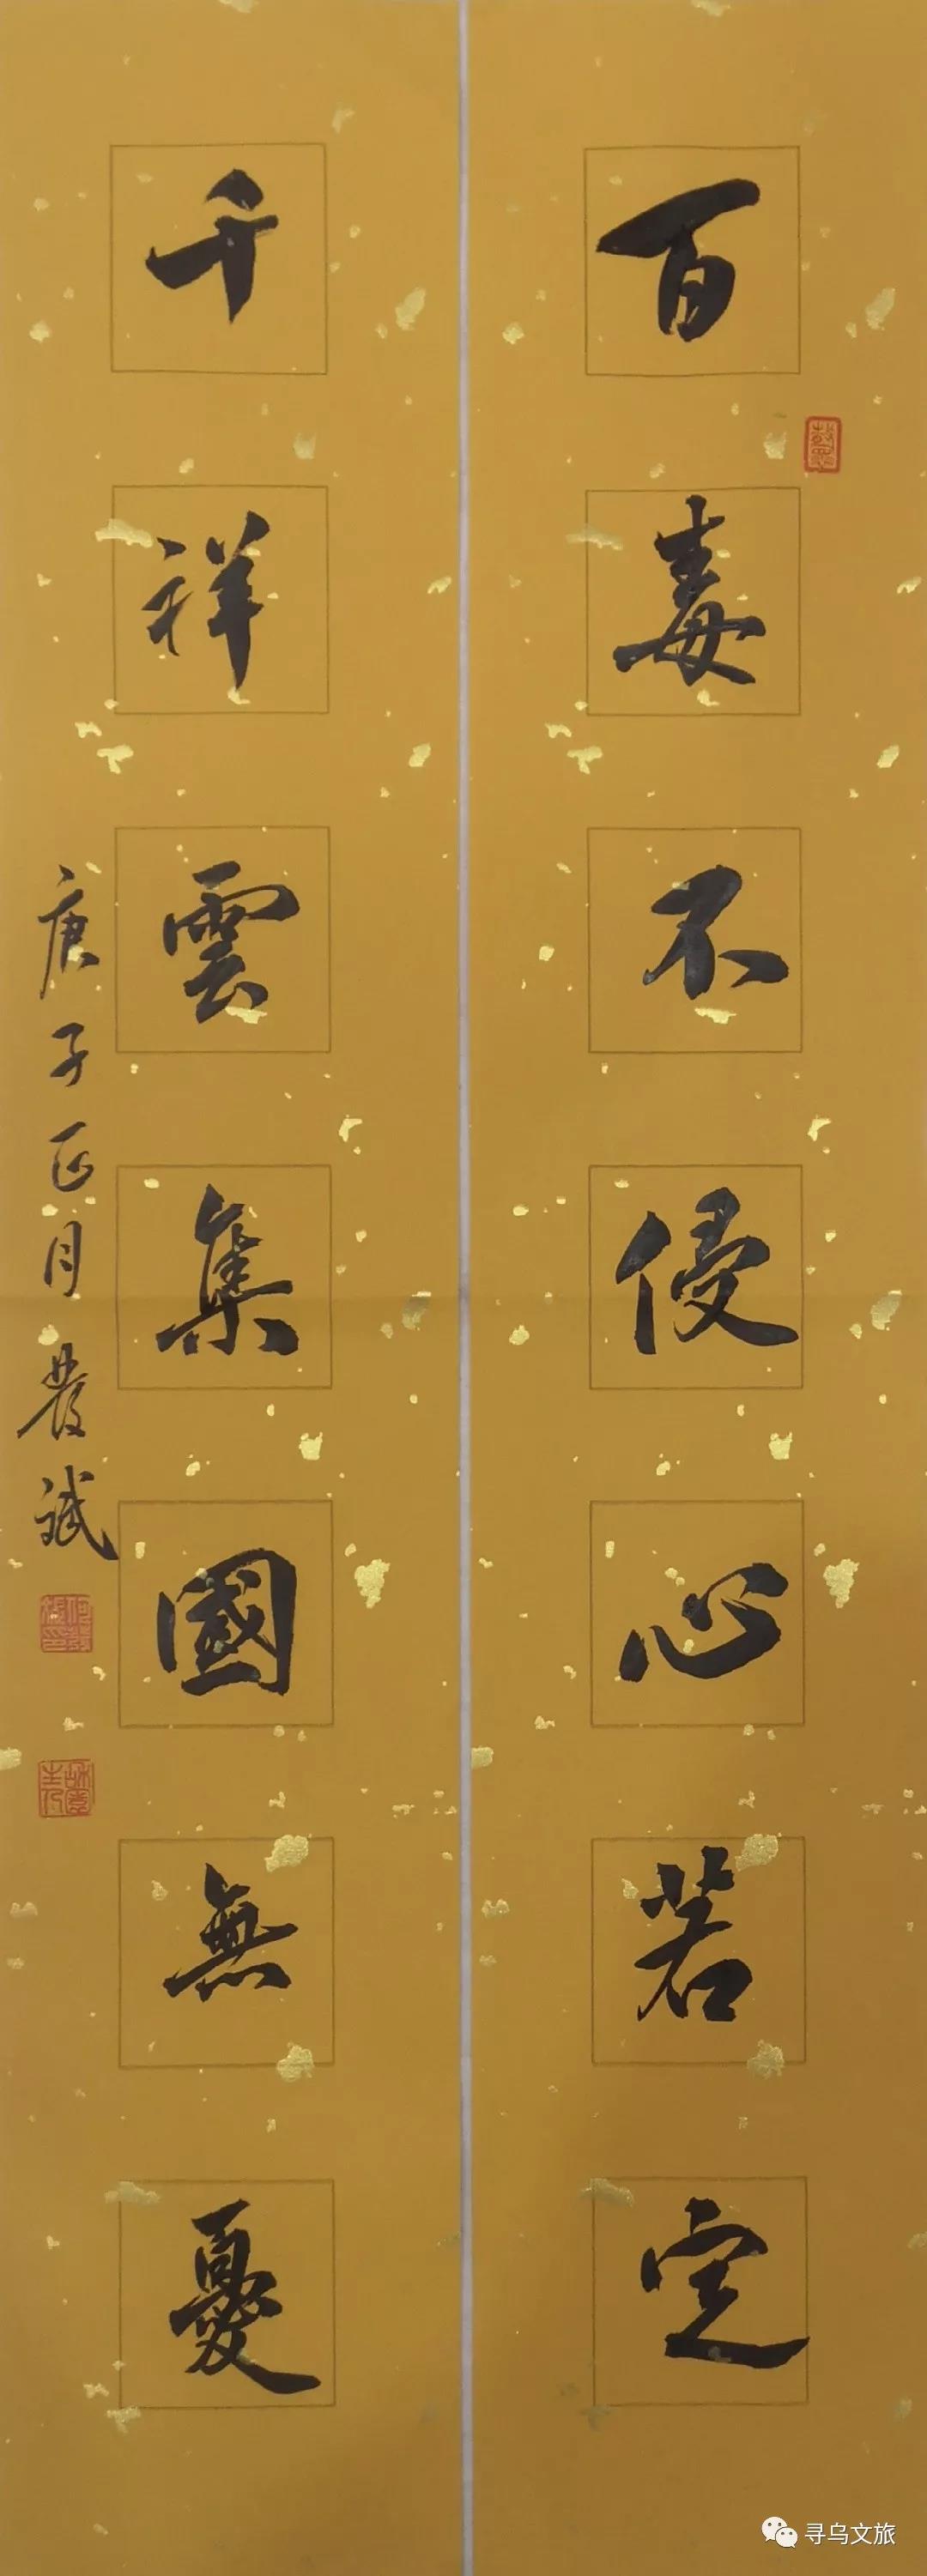 百毒不侵心若定
千祥雲集國無憂
庚子正月農斌
寻乌文旅